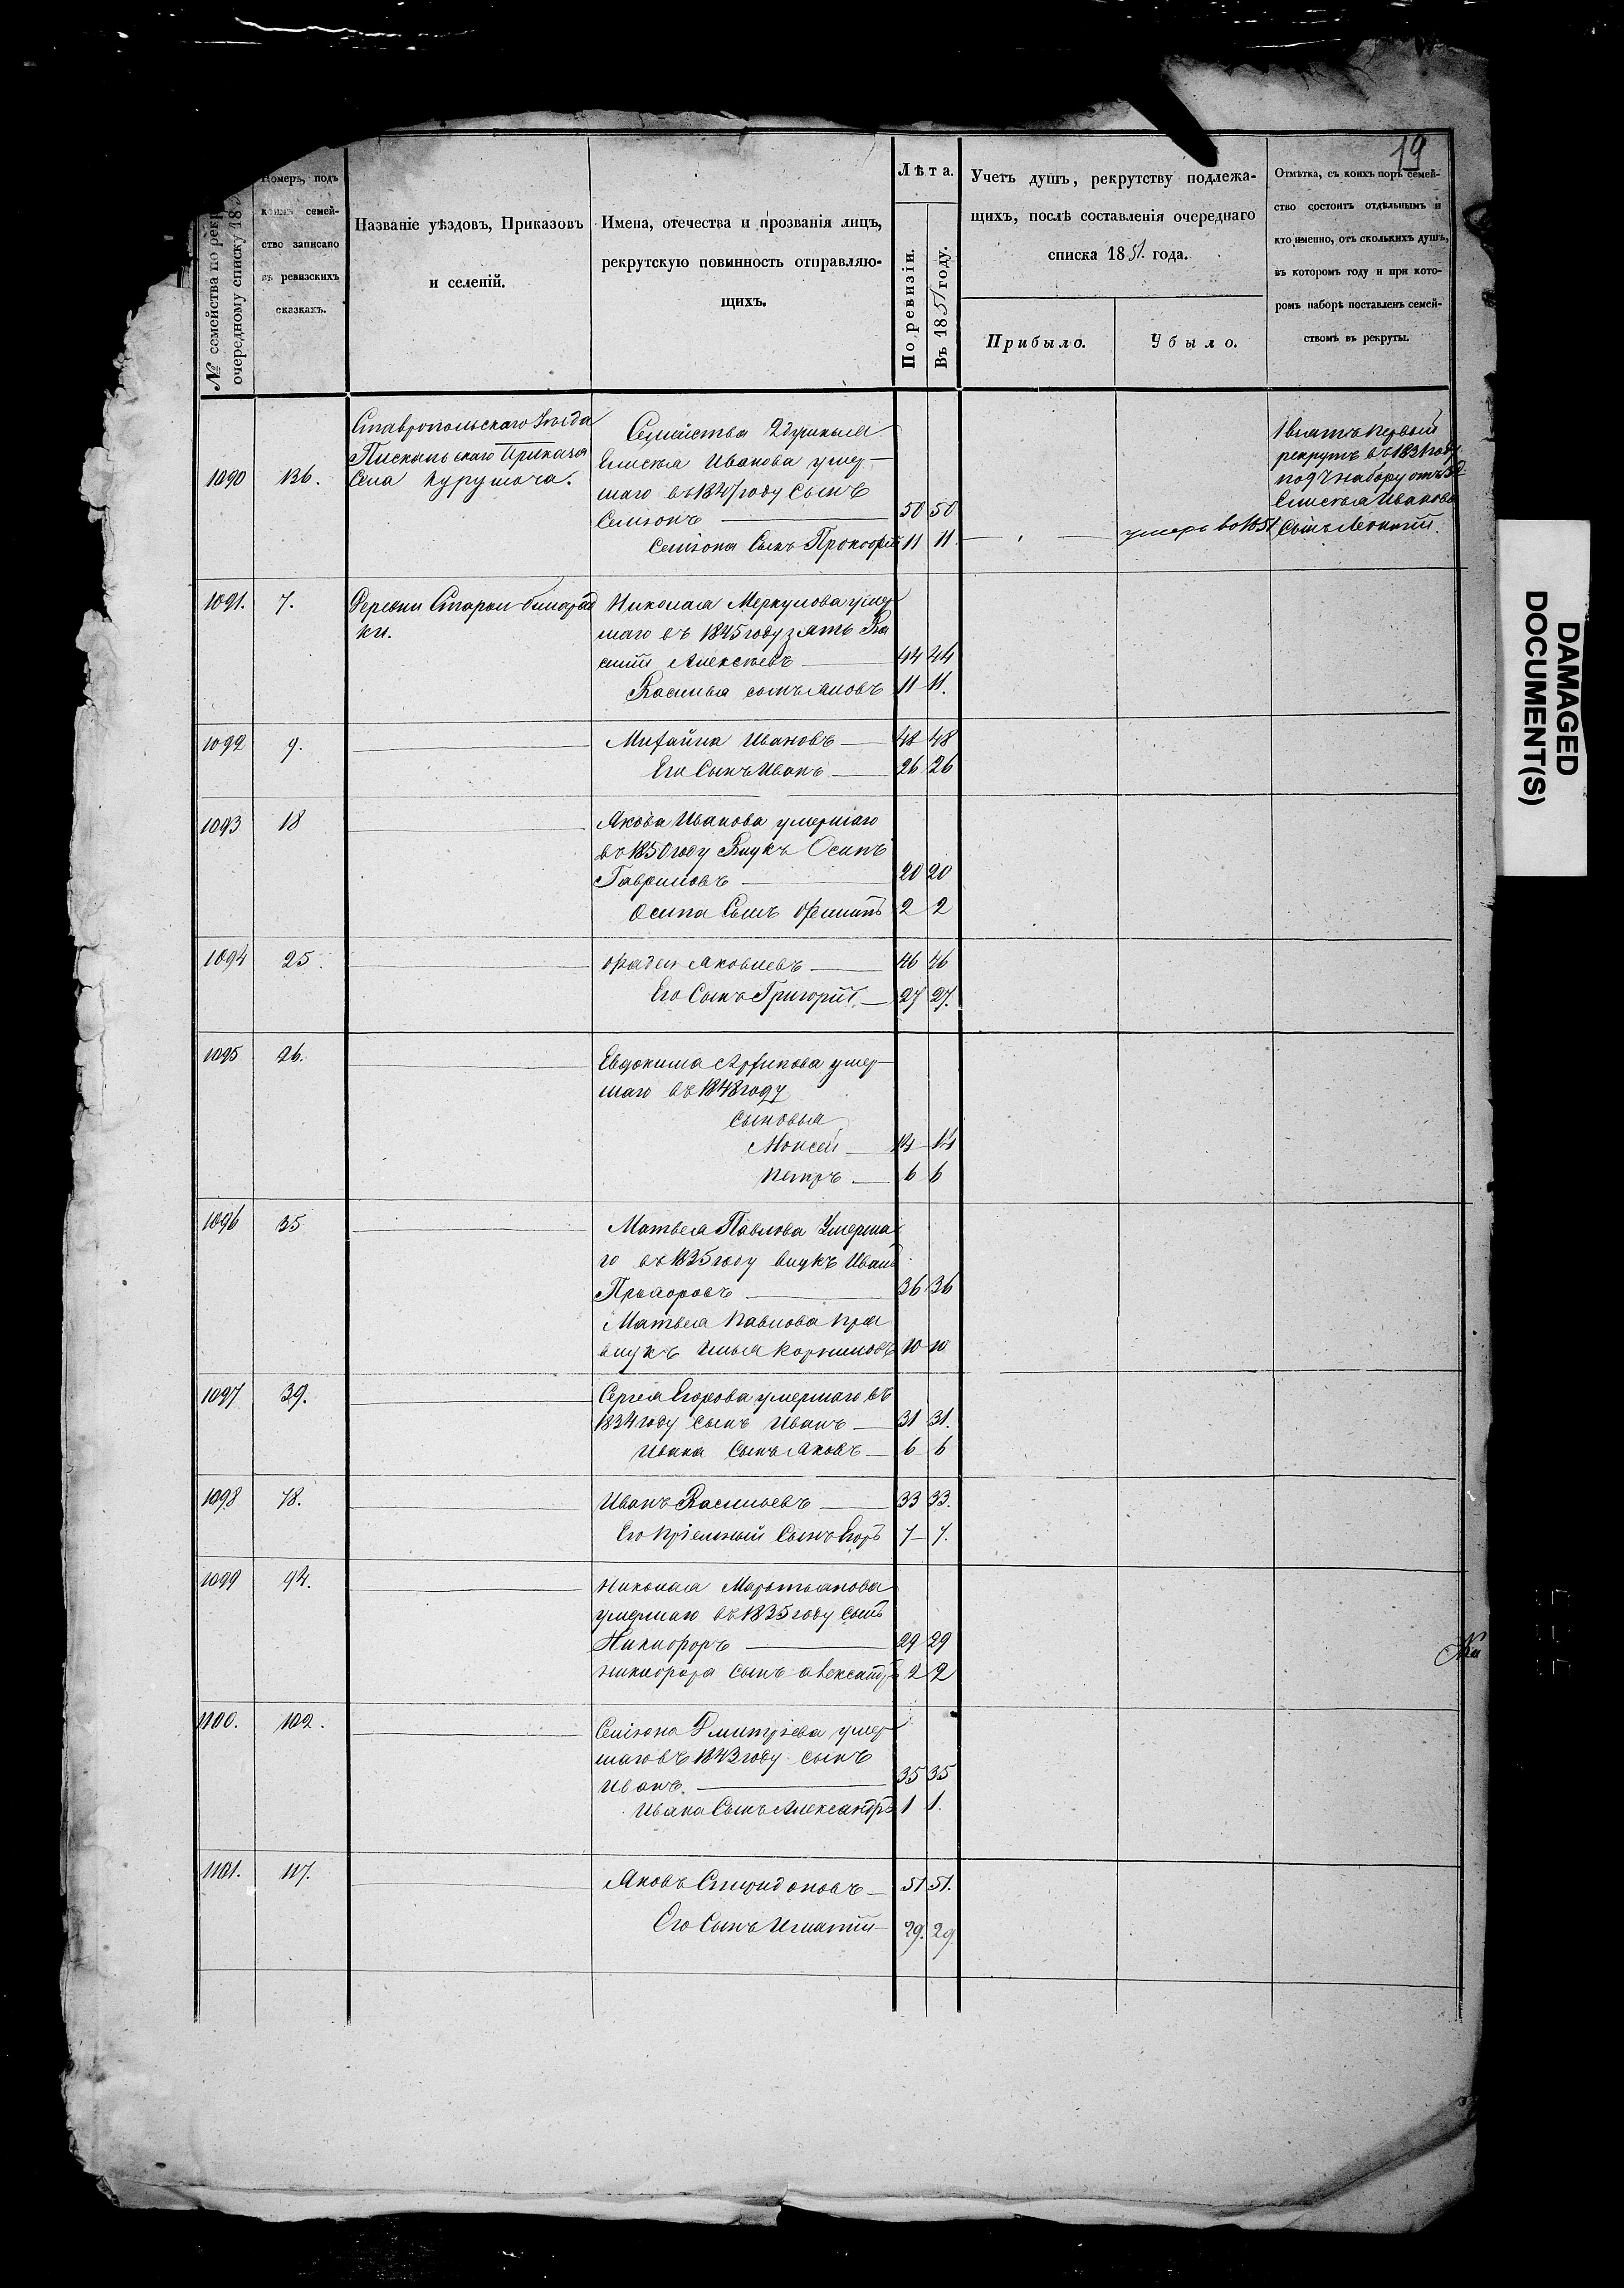 19
№ семейства по рекр
очередному списку 18
Номеръ, подъ
коимъ семей-
ство записано
въ ревизскихъ
сказкахъ.
Названіе уѣздовъ, Приказовъ
и селеній.
Имена, отечества и прозванія лицъ,
рекрутскую повинность отправляю-
щихъ.
Лѣта.
По ревизіи.
Въ 1851 году.
Учетъ душъ, рекрутству подлежа-
щихъ, послѣ составленія очереднаго
списка 1851. года.
Прибыло.
Убыло.
Отмѣтка, съ коихъ поръ семей-
ство состоитъ отдѣльнымъ и
кто именно, отъ сколькихъ душъ,
въ которомъ году и при кото-
ромъ наборѣ поставленъ семей-
ствомъ въ рекруты.
1090 136.
Ставропольскаго Уѣзда
Пискальскаго Приказа
Села Курумоча.
Семейства 2 душныя
Елисѣя Иванова умер-
шаго въ 1847 году Сынъ
Семіонъ 50 50
Семіона Сынъ Прокофій 11 11
умеръ во 1851
взятъ первый
рекрутъ въ 1831 году
Елисѣя Иванова
Сынъ
1091. 7.
Деревни Старой Бинарад
ки.
Николая Меркулова умер
шаго въ 1845 году зять Ва
силій Алексѣевъ 44 44
Василья сынъ Яковъ 11 11.
1092 9.
Михайла Ивановъ 48 48
Его Сынъ Иванъ 26 26
1093 18
Якова Иванова умершаго
въ 1850 году Внукъ Осипъ
Гавриловъ 20 20
Осипа Сынъ Филипъ 2 2
1094 25.
Фадей Яковлевъ 46 46
Его Сынъ Григорій 27 27.
1095 26.
Евдокима Архипова умер-
шаго въ 1848 году
Сыновья
Моисей 14 14
Петръ 6 6
1096 35
Матвея Павлова Умерша
го въ 1835 году внукъ Иванъ
36 36
Матвея Павлова пра
внукъ Илья Корниловъ 10 10
1097 39.
Сергея Егорова умершаго въ
1834 году сынъ Иванъ 31 31.
Ивана Сынъ Яковъ 6 6
1098 78.
Иванъ Васильевъ 33 33.
Его пріемный Сынъ Егоръ 7 7.
1099 94.
Николая Мартьянова
умершаго въ 1835 году сынъ
Никифоръ 29 29
Никифора сынъ Александръ 2 2
1100. 102.
Семіона Дмитріева умер
шаго въ 1843 году сынъ
Иванъ 35 35
Ивана Сынъ Александръ 1 1.
1101. 117.
Яковъ Спиридоновъ 51 51.
Его Сынъ Игнатій 29. 29
DAMAGED
DOCUMENT(S)